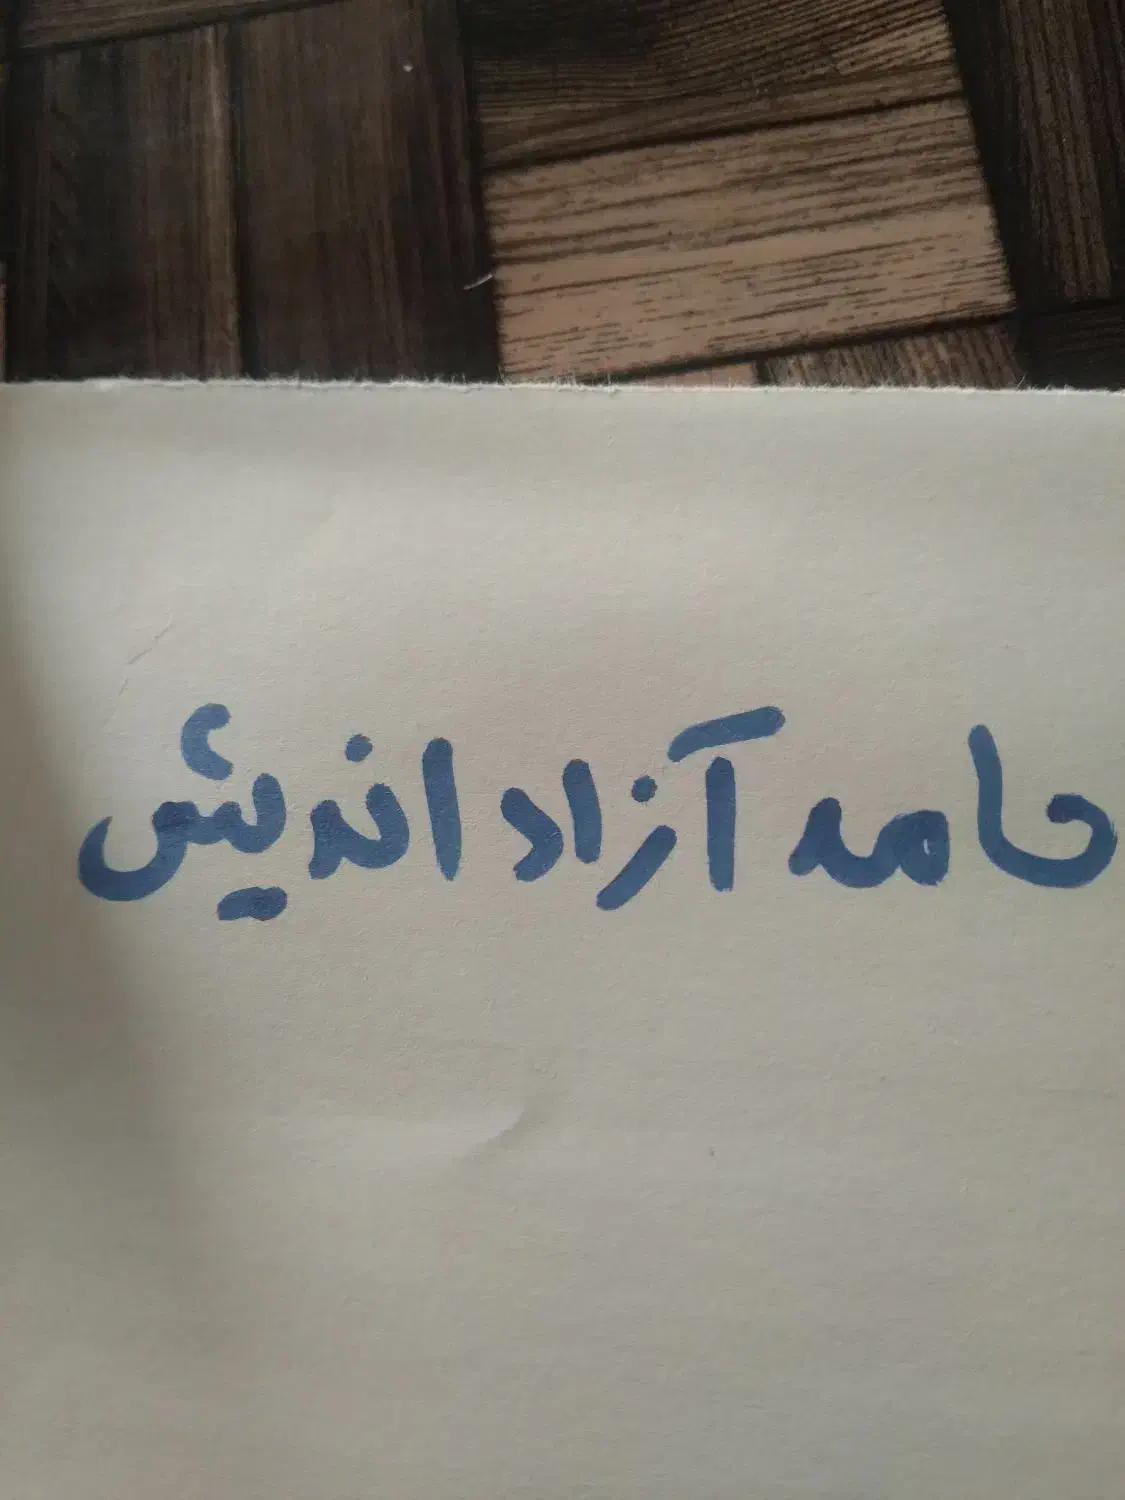 حامد آزاد اندیش